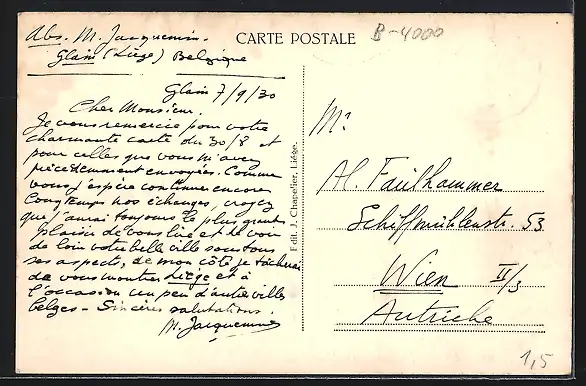 Abs. M. Jacquemin.
Glain (Liège) Belgique
CARTE POSTALE
B-4000
Glain 7/9/30
Cher Monsieur.
Je vous remercie pour votre
charmante carte du 30/8 et
pour celles que vous m'avez
précédemment envoyées. Comme
vous j'espère continuer encore
longtemps nos échanges, croyez
que j'aurai toujours le plus grand
plaisir de vous lire et de voir
de loin votre belle ville sous tous
ses aspects, de mon côté je tâcherai
de vous montrer Liège et à
l'occasion un peu d'autres villes
belges - Sincères salutations.
M. Jacquemin
Edit. J. Chapelier, Liége.
Mr.
Al. Failhammer
Schiffmühlenstr. 53
Wien II/3
Autriche
1,5